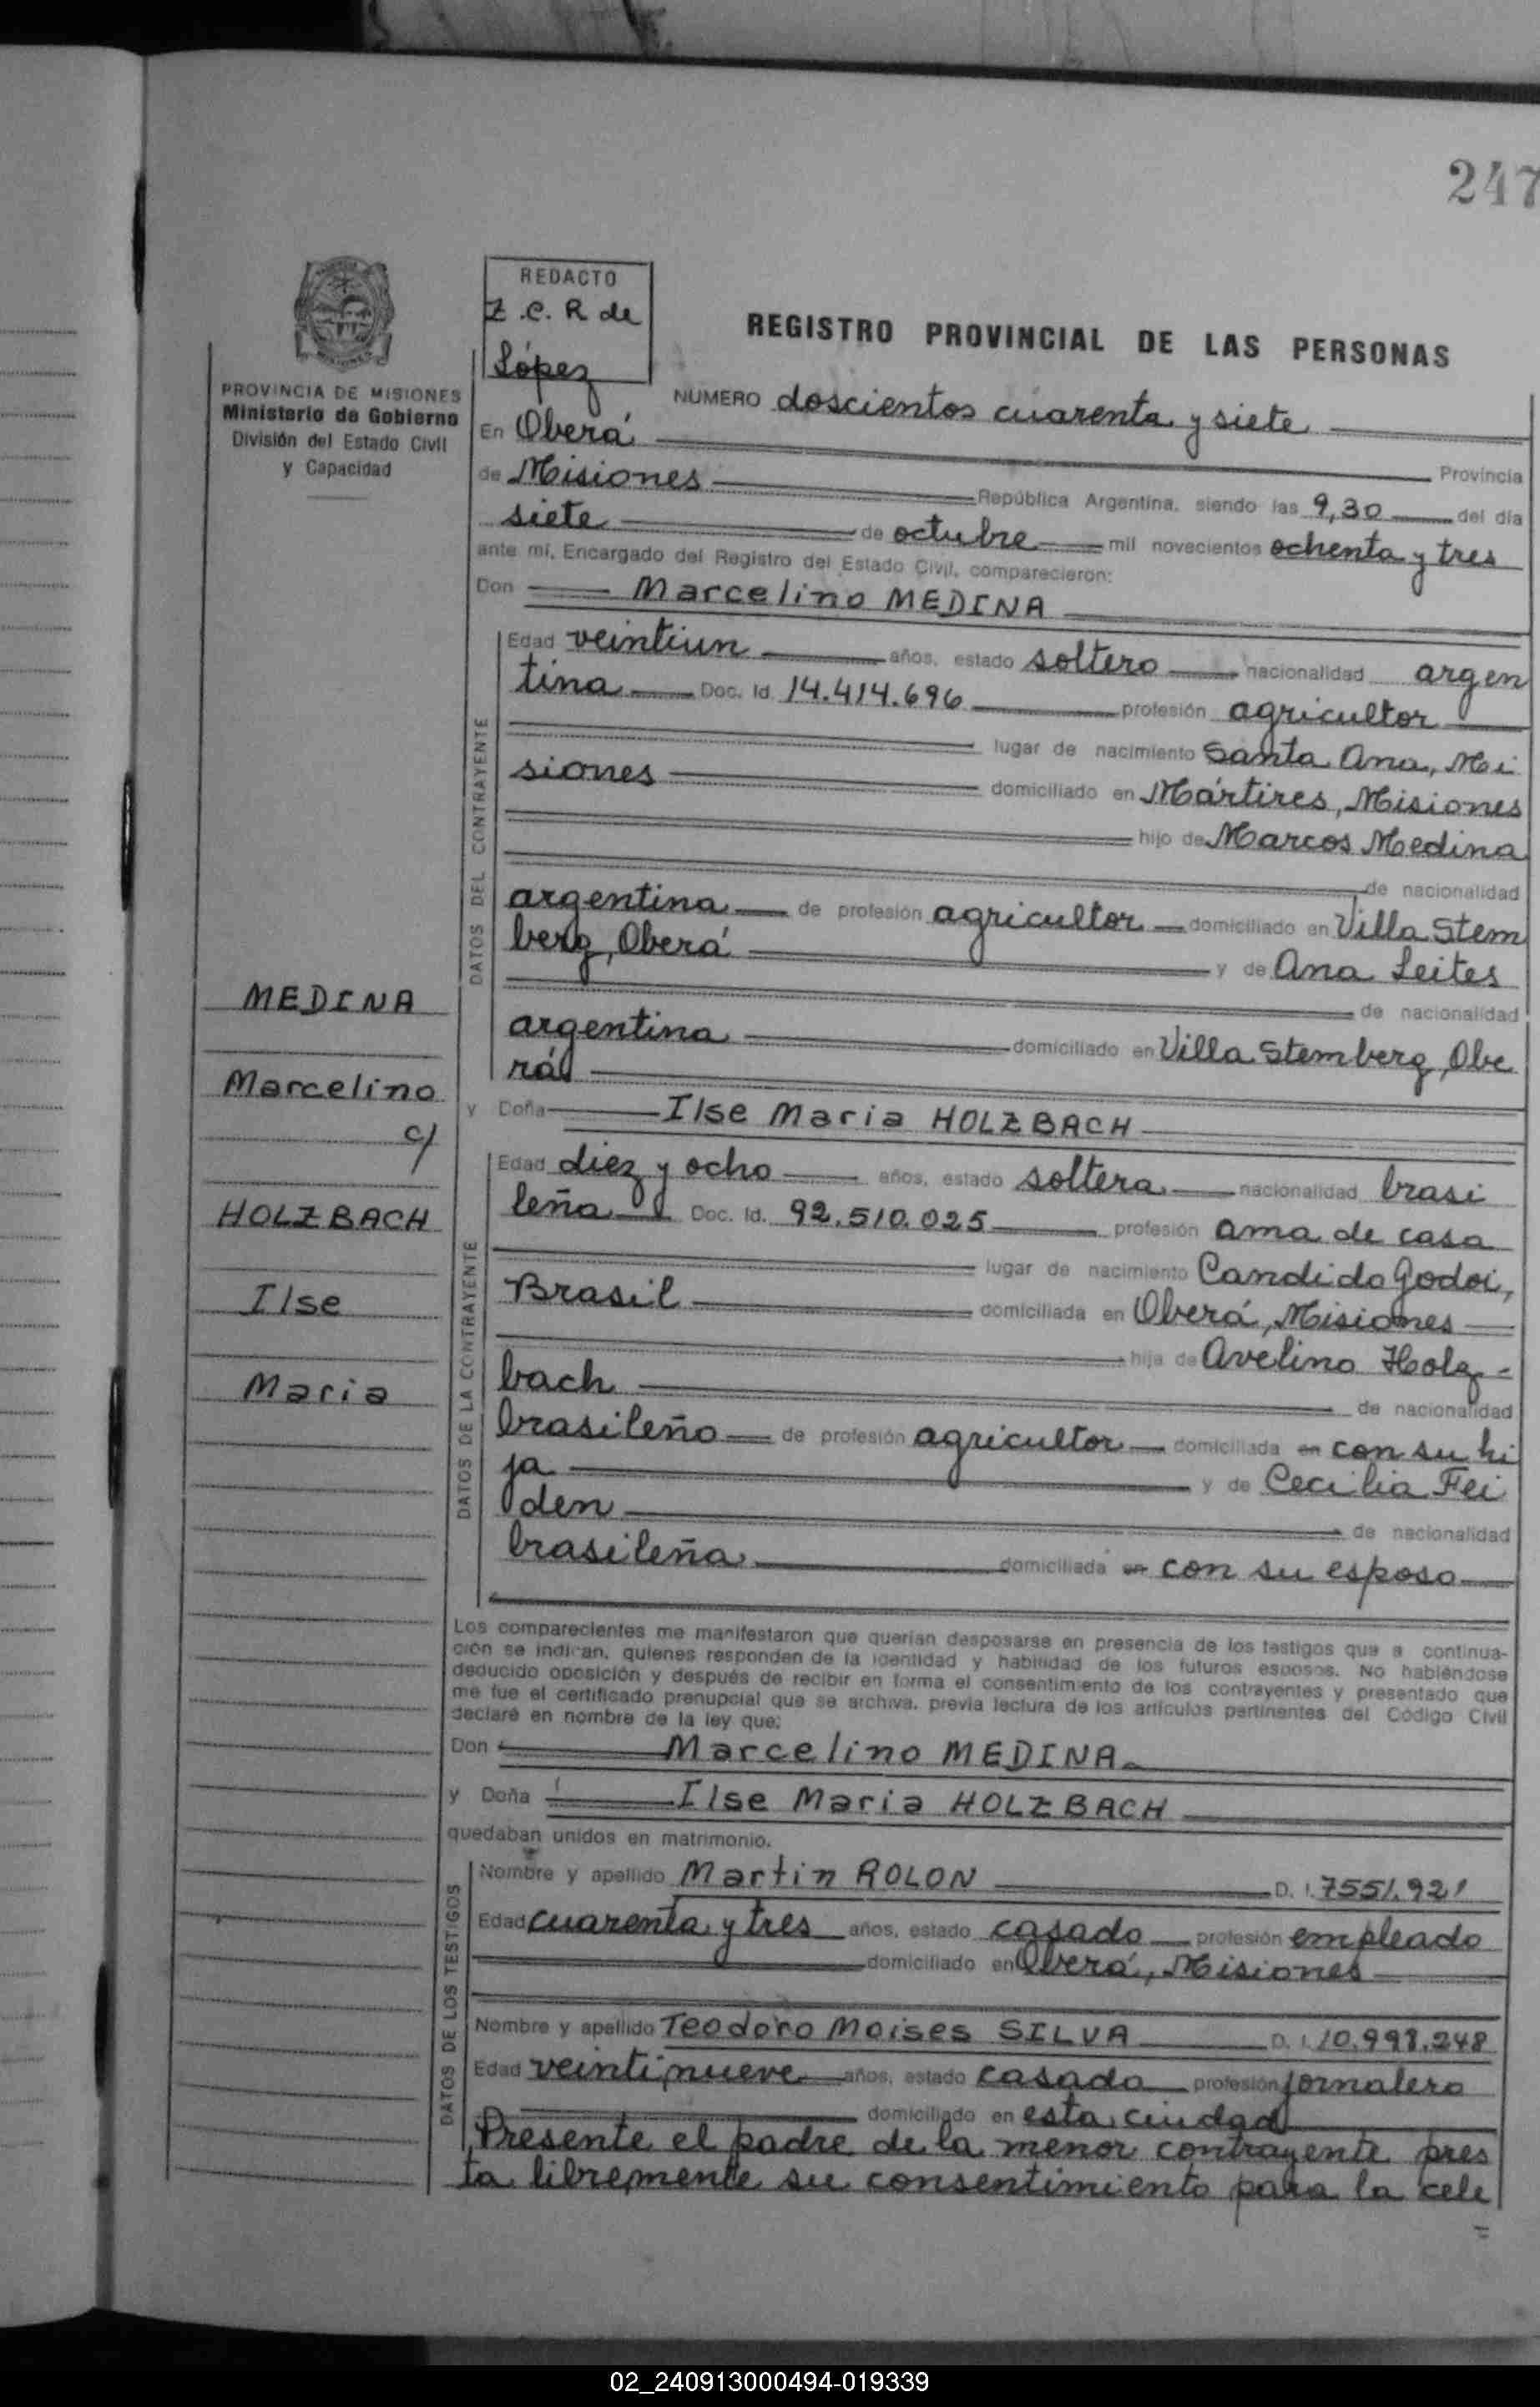 247
REDACTO
Z.C.R de
López
PROVINCIA DE MISIONES
Ministerio de Gobierno
División del Estado Civil
y Capacidad
REGISTRO PROVINCIAL DE LAS PERSONAS
NUMERO doscientos cuarenta y siete
En Oberá Provincia
de Misiones República Argentina, siendo las 9,30 del día
siete de octubre mil novecientos ochenta y tres
ante mí, Encargado del Registro del Estado Civil, comparecieron:
Don Marcelino MEDINA
DATOS DEL CONTRAYENTE
Edad veintiun años, estado soltero nacionalidad argen
tina Doc. Id. 14.414.696 profesión agricultor
lugar de nacimiento Santa Ana, Mi
siones domiciliado en Mártires, Misiones
hijo de Marcos Medina
de nacionalidad
argentina de profesión agricultor domiciliado en Villa Stem
berg, Oberá y de Ana Leites
de nacionalidad
argentina domiciliado en Villa Stemberg, Obe
rá
MEDINA
Marcelino
c/
HOLZBACH
Ilse
Maria
y Doña Ilse Maria HOLZBACH
DATOS DE LA CONTRAYENTE
Edad diez y ocho años, estado soltera nacionalidad brasi
leña Doc. Id. 92.510.025 profesión ama de casa
lugar de nacimiento Candido Godoi,
Brasil domiciliada en Oberá, Misiones
hija de Avelino Holz-
bach de nacionalidad
brasileño de profesión agricultor domiciliada en con su hi
ja y de Cecilia Fei
den de nacionalidad
brasileña domiciliada en con su esposo
Los comparecientes me manifestaron que querían desposarse en presencia de los testigos que a continua-
ción se indican, quienes responden de la identidad y habilidad de los futuros esposos. No habiéndose
deducido oposición y después de recibir en forma el consentimiento de los contrayentes y presentado que
me fue el certificado prenupcial que se archiva, previa lectura de los artículos pertinentes del Código Civil
declaré en nombre de la ley que:
Don Marcelino MEDINA
y Doña Ilse Maria HOLZBACH
quedaban unidos en matrimonio.
DATOS DE LOS TESTIGOS
Nombre y apellido Martin ROLON D. I. 7551.921
Edad cuarenta y tres años, estado casado profesión empleado
domiciliado en Oberá, Misiones
Nombre y apellido Teodoro Moises SILVA D. I. 10.998.248
Edad veintinueve años, estado casado profesión jornalero
domiciliado en esta ciudad
Presente el padre de la menor contrayente pres
ta libremente su consentimiento para la cele
=
02_240913000494-019339